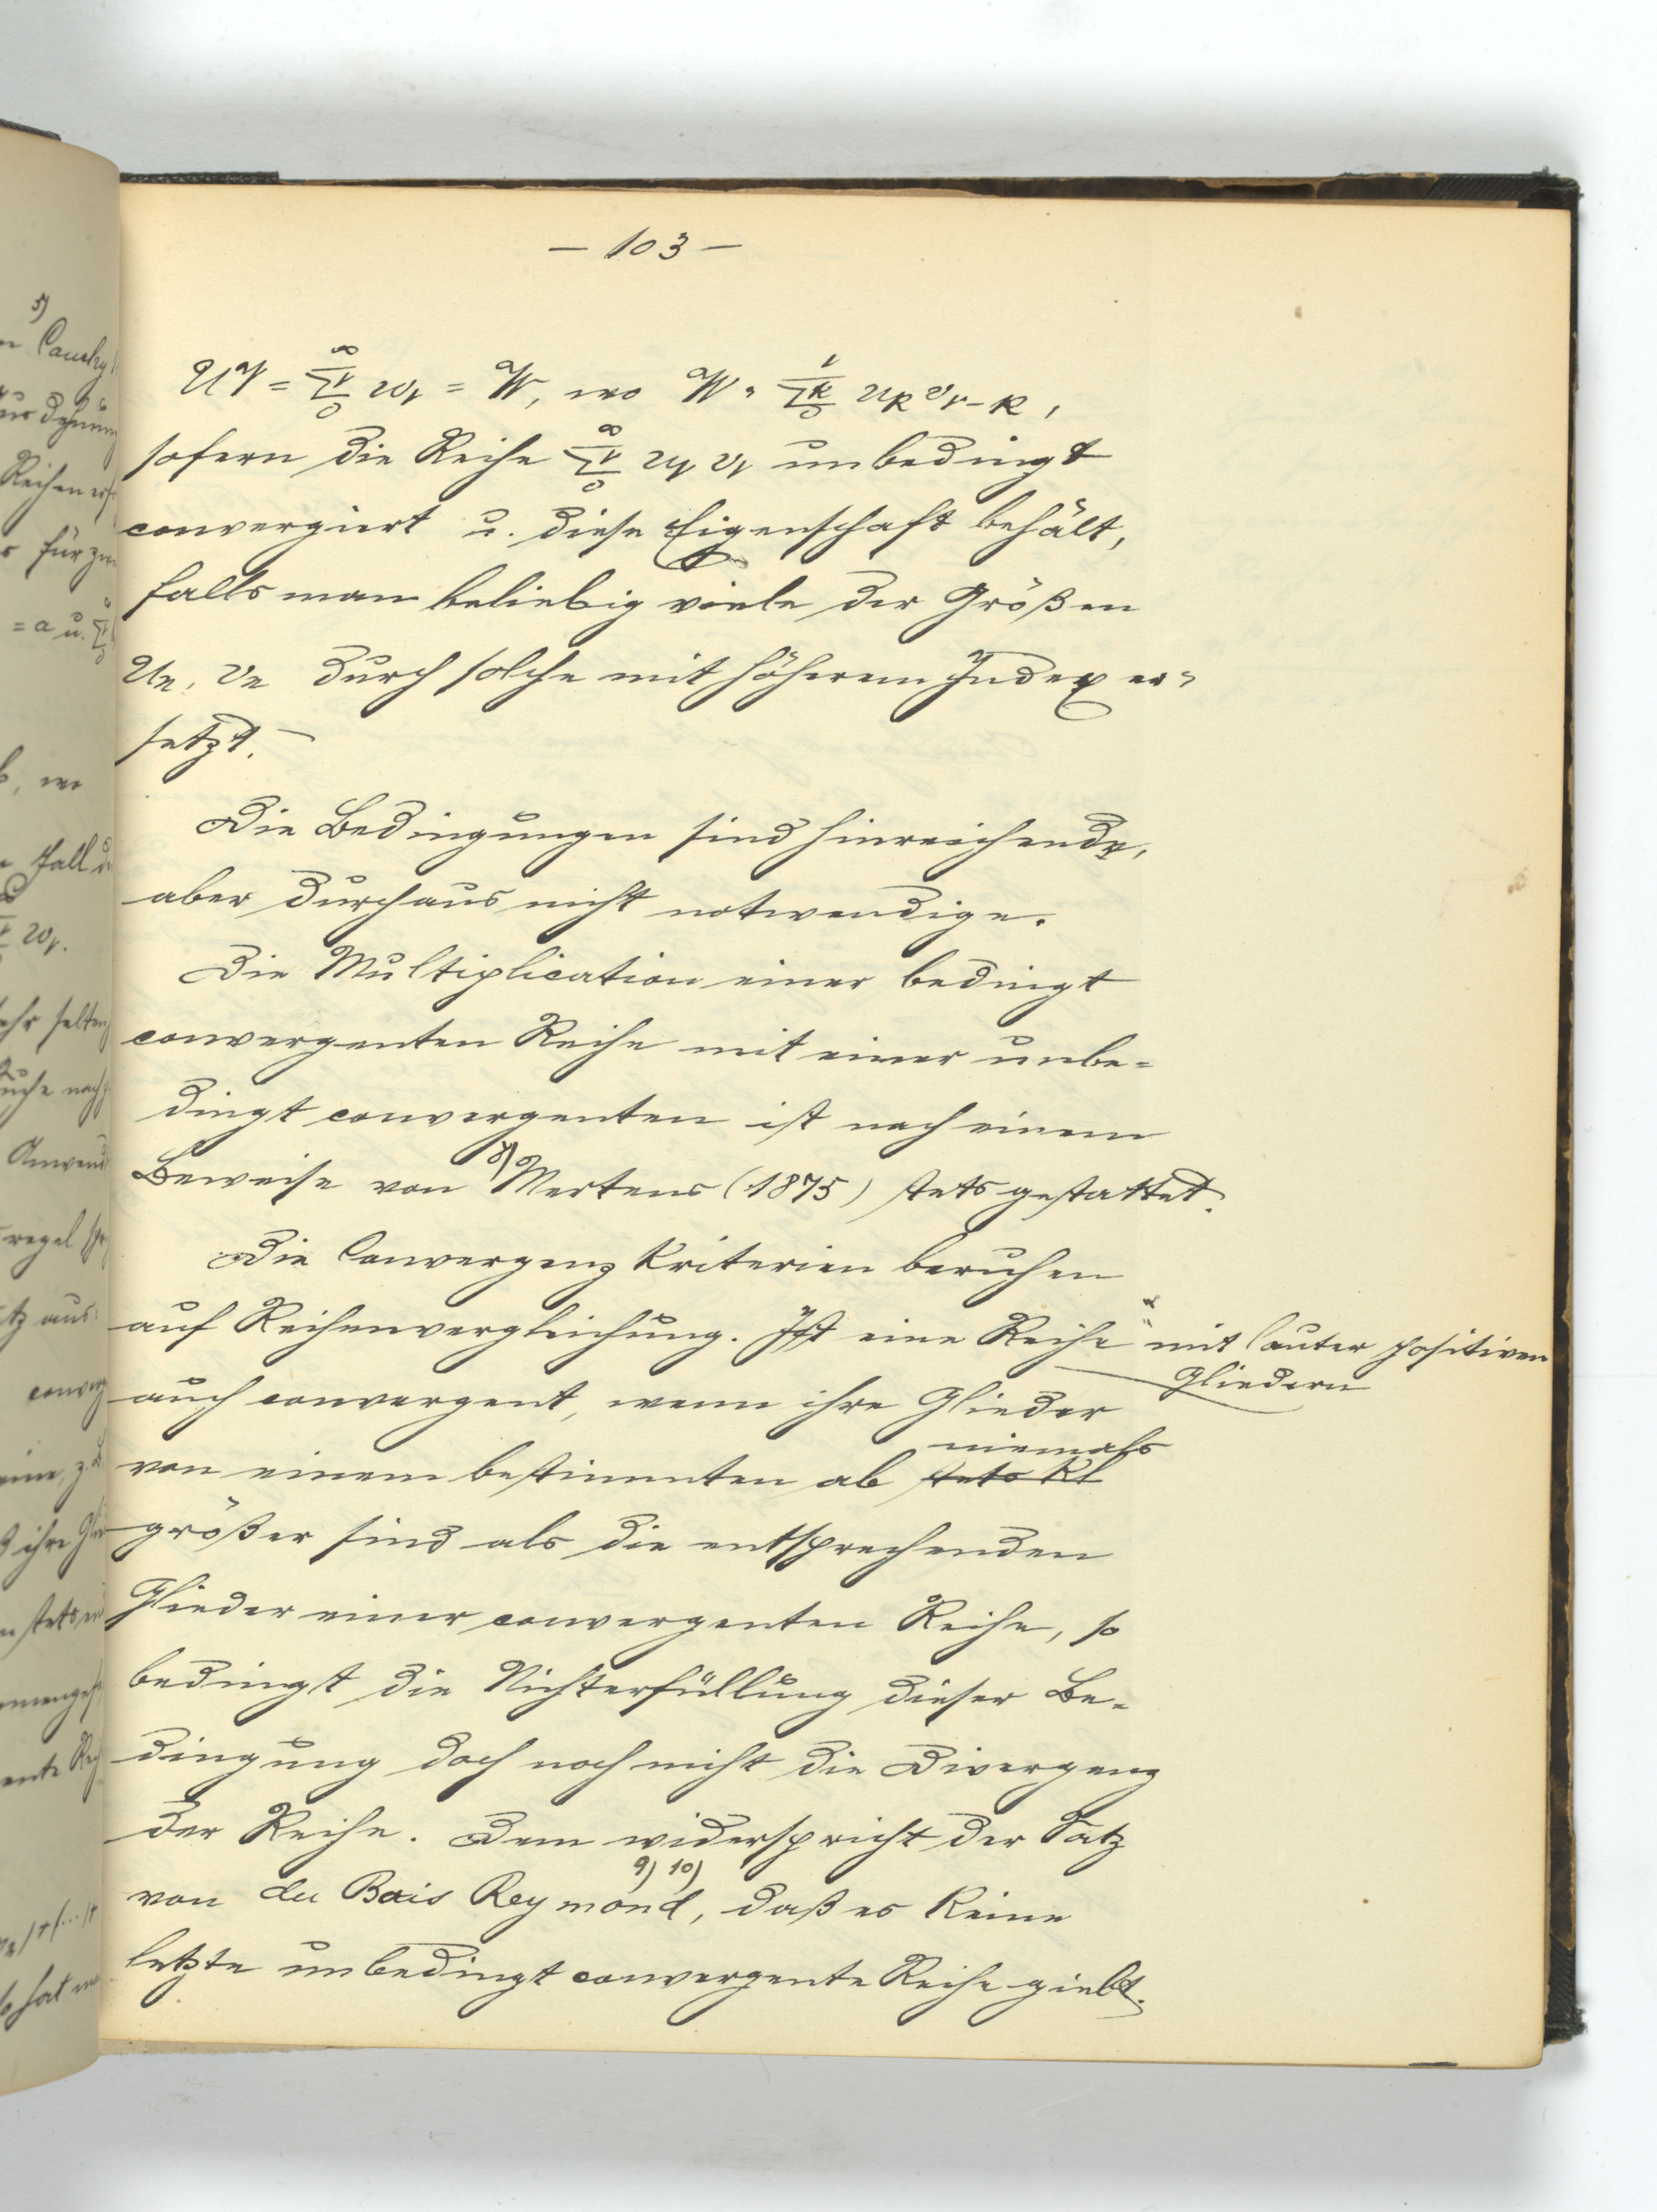 — 103 —
UV = ∞Σν0 wν = W, wo W = νΣκ0 uκ vν-κ,
sofern die Reihe ∞Σν0 uν vν unbedingt
convergiert u. diese Eigenschaft behält,
falls man beliebig viele der Größen
un, vn durch solche mit höherem Index er=
setzt. —
Die Bedingungen sind hinreichende,
aber durchaus nicht notwendige.
Die Multiplication einer bedingt
convergenten Reihe mit einer unbe=
dingt convergenten ist nach einem
Beweise von 8) Mertens (1875) stets gestattet.
Die Convergenz Kriterien beruhen
auf Reihenvergleichung. Ist eine Reihe mit lauter positiven
Gliedern
auch convergent, wenn ihre Glieder
niemals
von einem bestimmten ab stets kl
größer sind als die entsprechenden
Glieder einer convergenten Reihe, so
bedingt die Nichterfüllung dieser Be=
dingung doch noch nicht die Divergenz
der Reihe. Dem widerspricht der Satz
von du Bois Reymond 9) 10), daß es keine
letzte unbedingt convergente Reihe giebt.